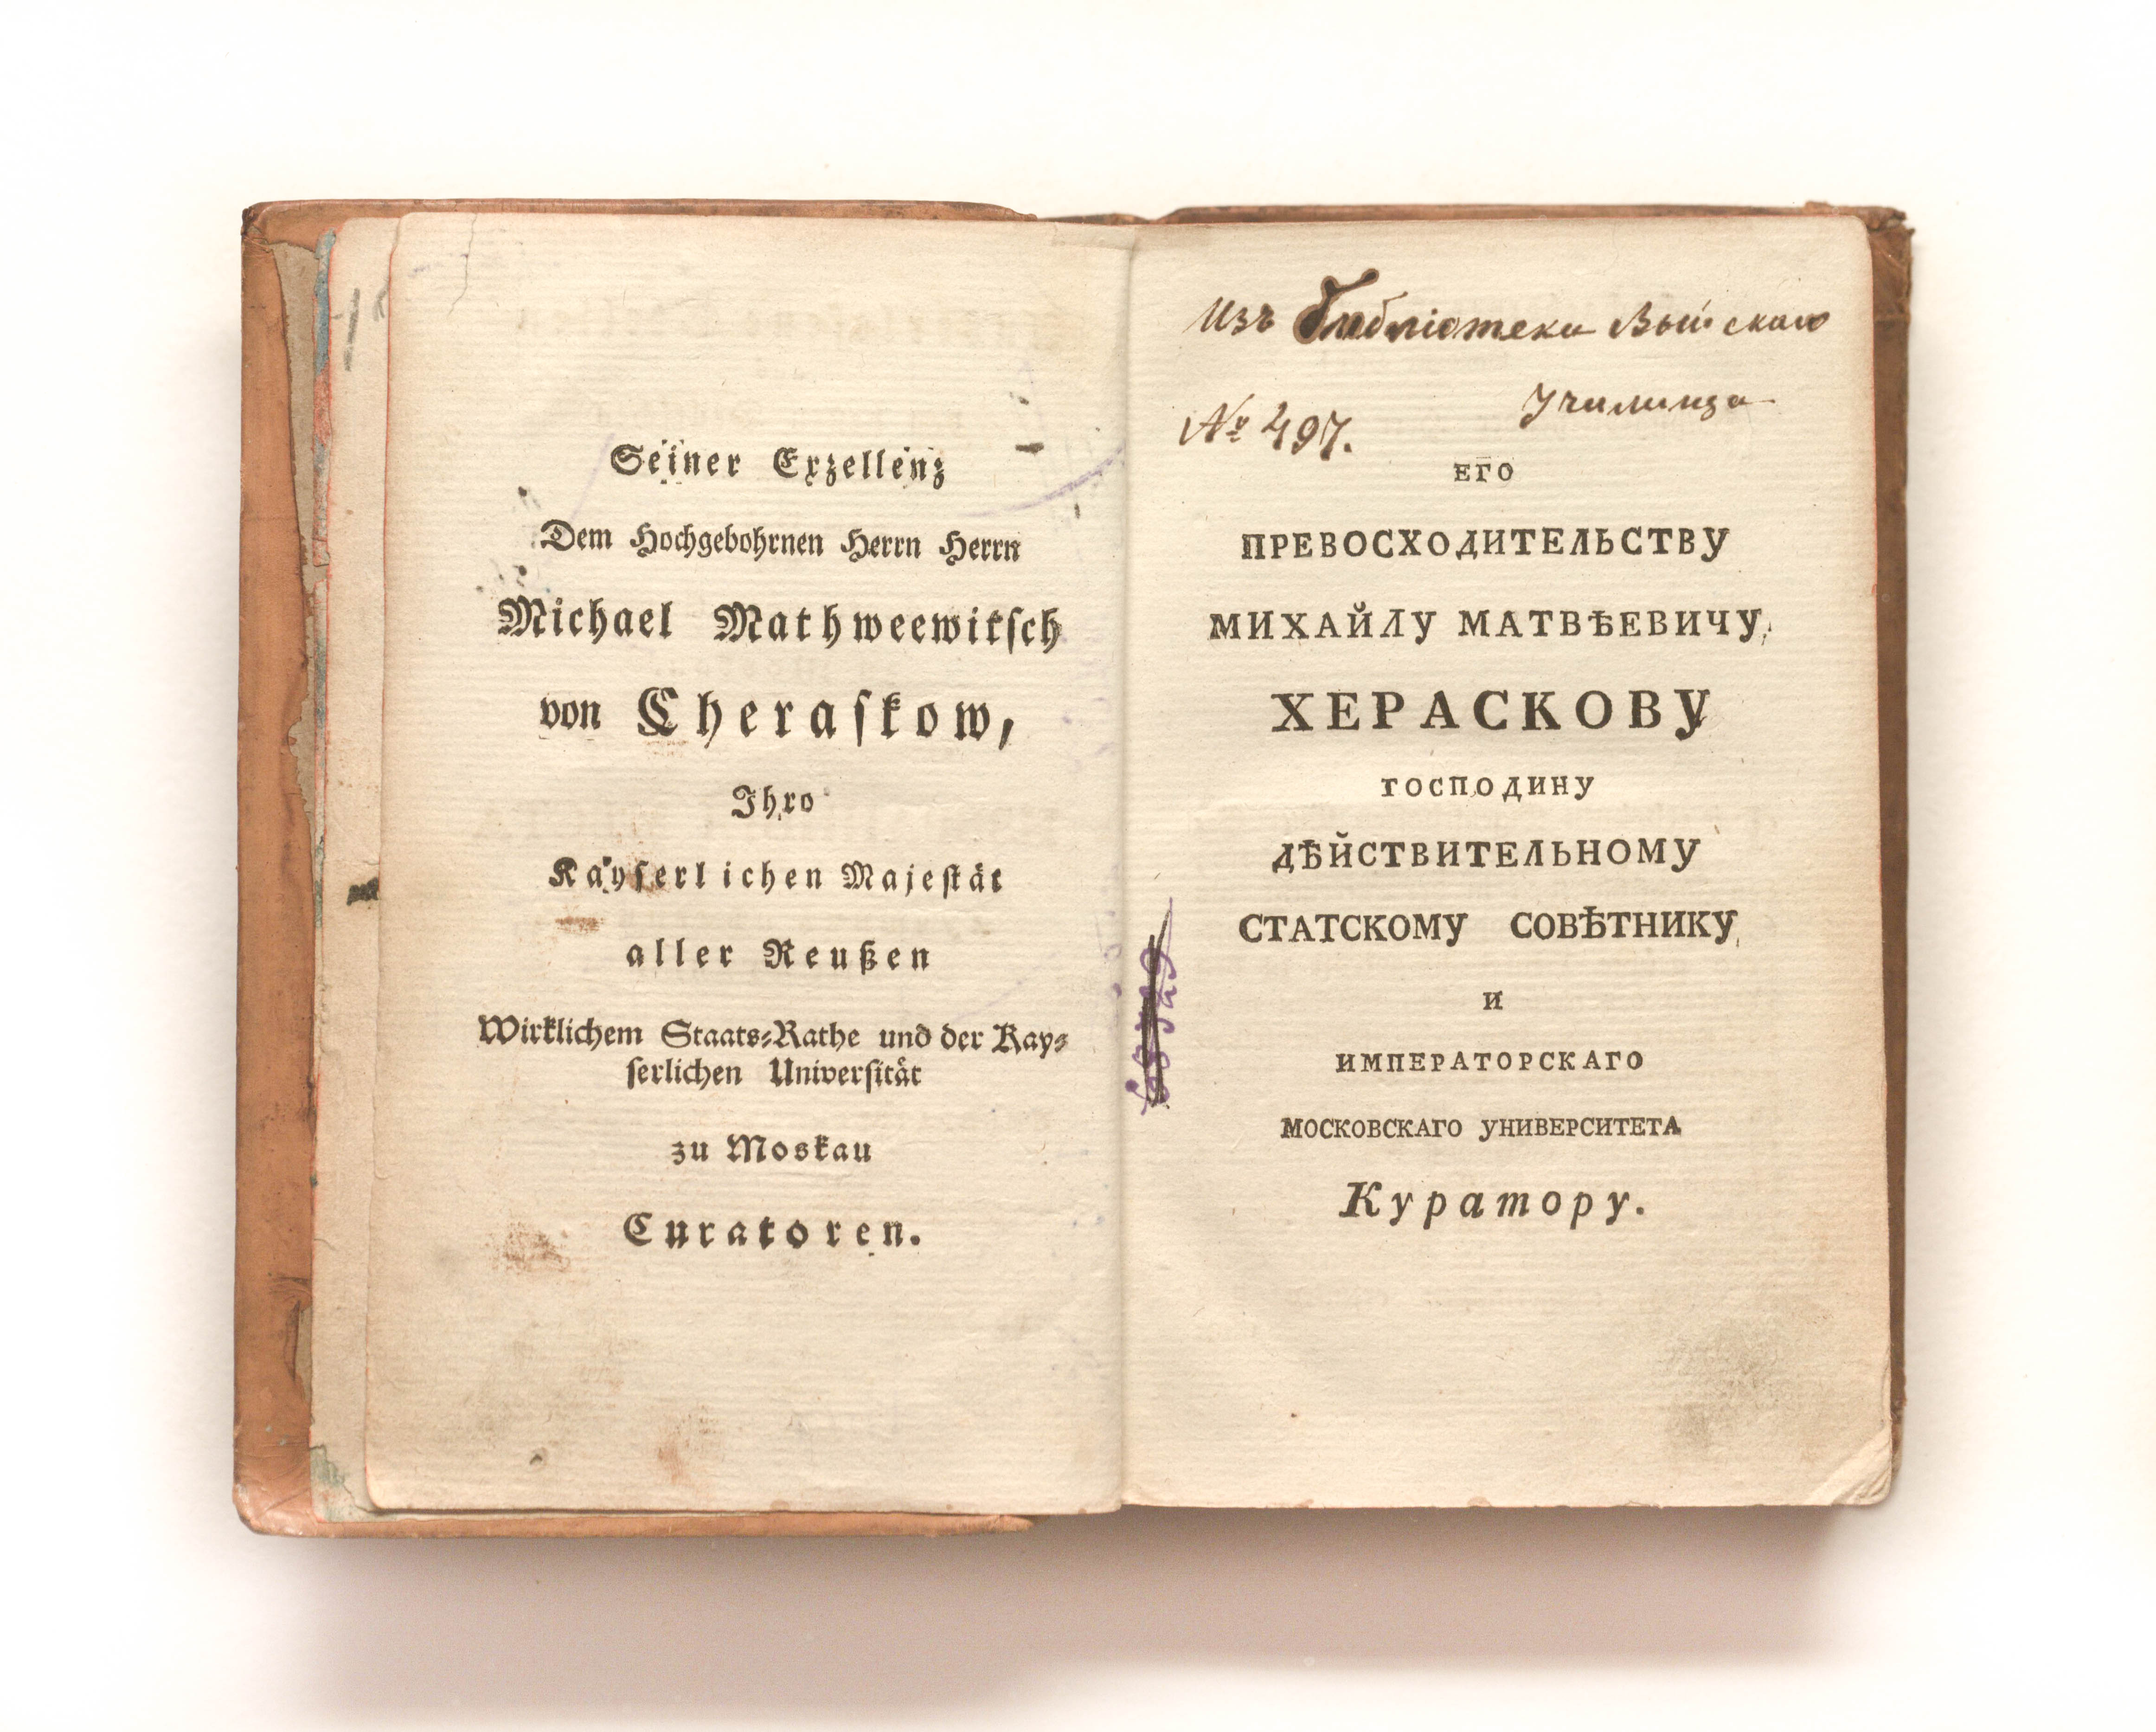 Seiner Exzellenz
Dem Hochgebohrnen Herrn Herrn
Michael Mathweewitsch
von Cheraskow,
Ihro
Kayserlichen Majestät
aller Reußen
Wirklichem Staats-Rathe und der Kay-
serlichen Universität
zu Moskau
Curatoren.
Изъ Библіотеки Выйскаго
Училища
№ 497.
ЕГО
ПРЕВОСХОДИТЕЛЬСТВУ
МИХАЙЛУ МАТВѢЕВИЧУ,
ХЕРАСКОВУ
ГОСПОДИНУ
ДѢЙСТВИТЕЛЬНОМУ
СТАТСКОМУ СОВѢТНИКУ,
И
ИМПЕРАТОРСКАГО
МОСКОВСКАГО УНИВЕРСИТЕТА
Куратору.